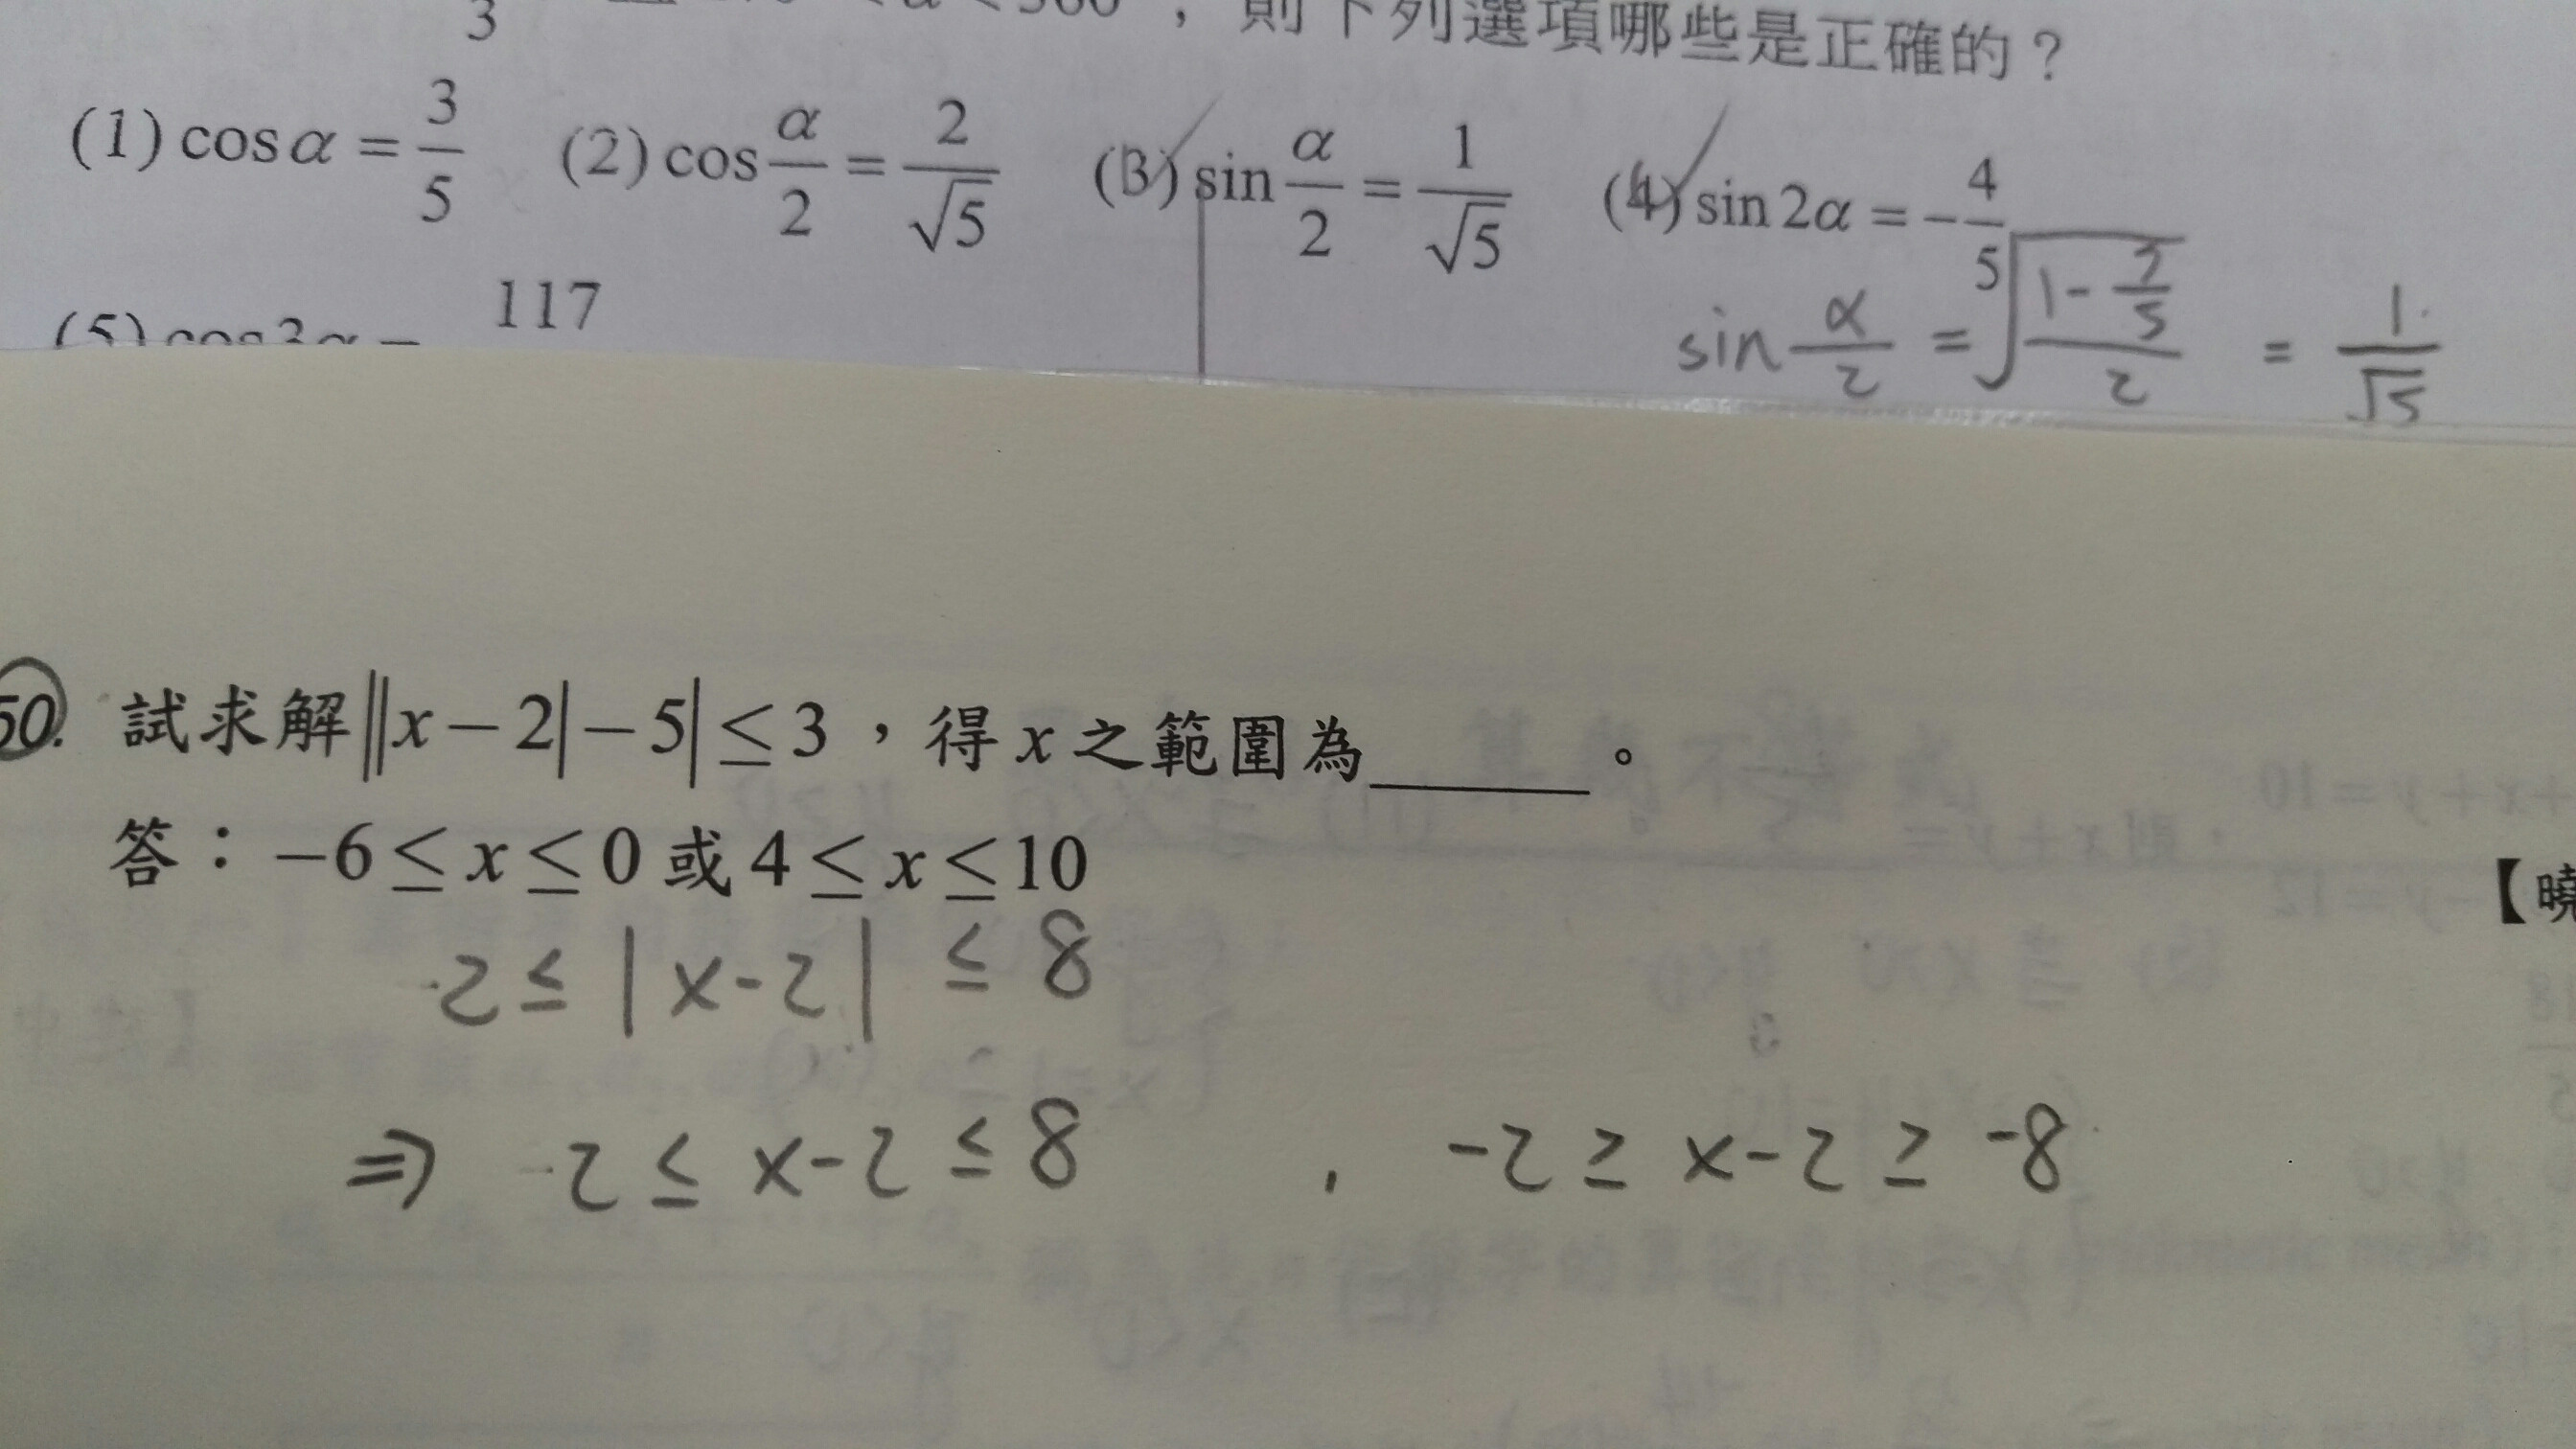 3
，則下列選項哪些是正確的？
(1) cos α = 3/5 (2) cos α/2 = 2/√5 (3) sin α/2 = 1/√5 (4) sin 2α = −4/5
117
sin α/2 = √((1-3/5)/2) = 1/√5
50. 試求解||x−2|−5|≤3，得x之範圍為______。
答：−6≤x≤0或4≤x≤10
【曉
2≤|x-2|≤8
⇒ 2≤x-2≤8 , -2≥x-2≥-8